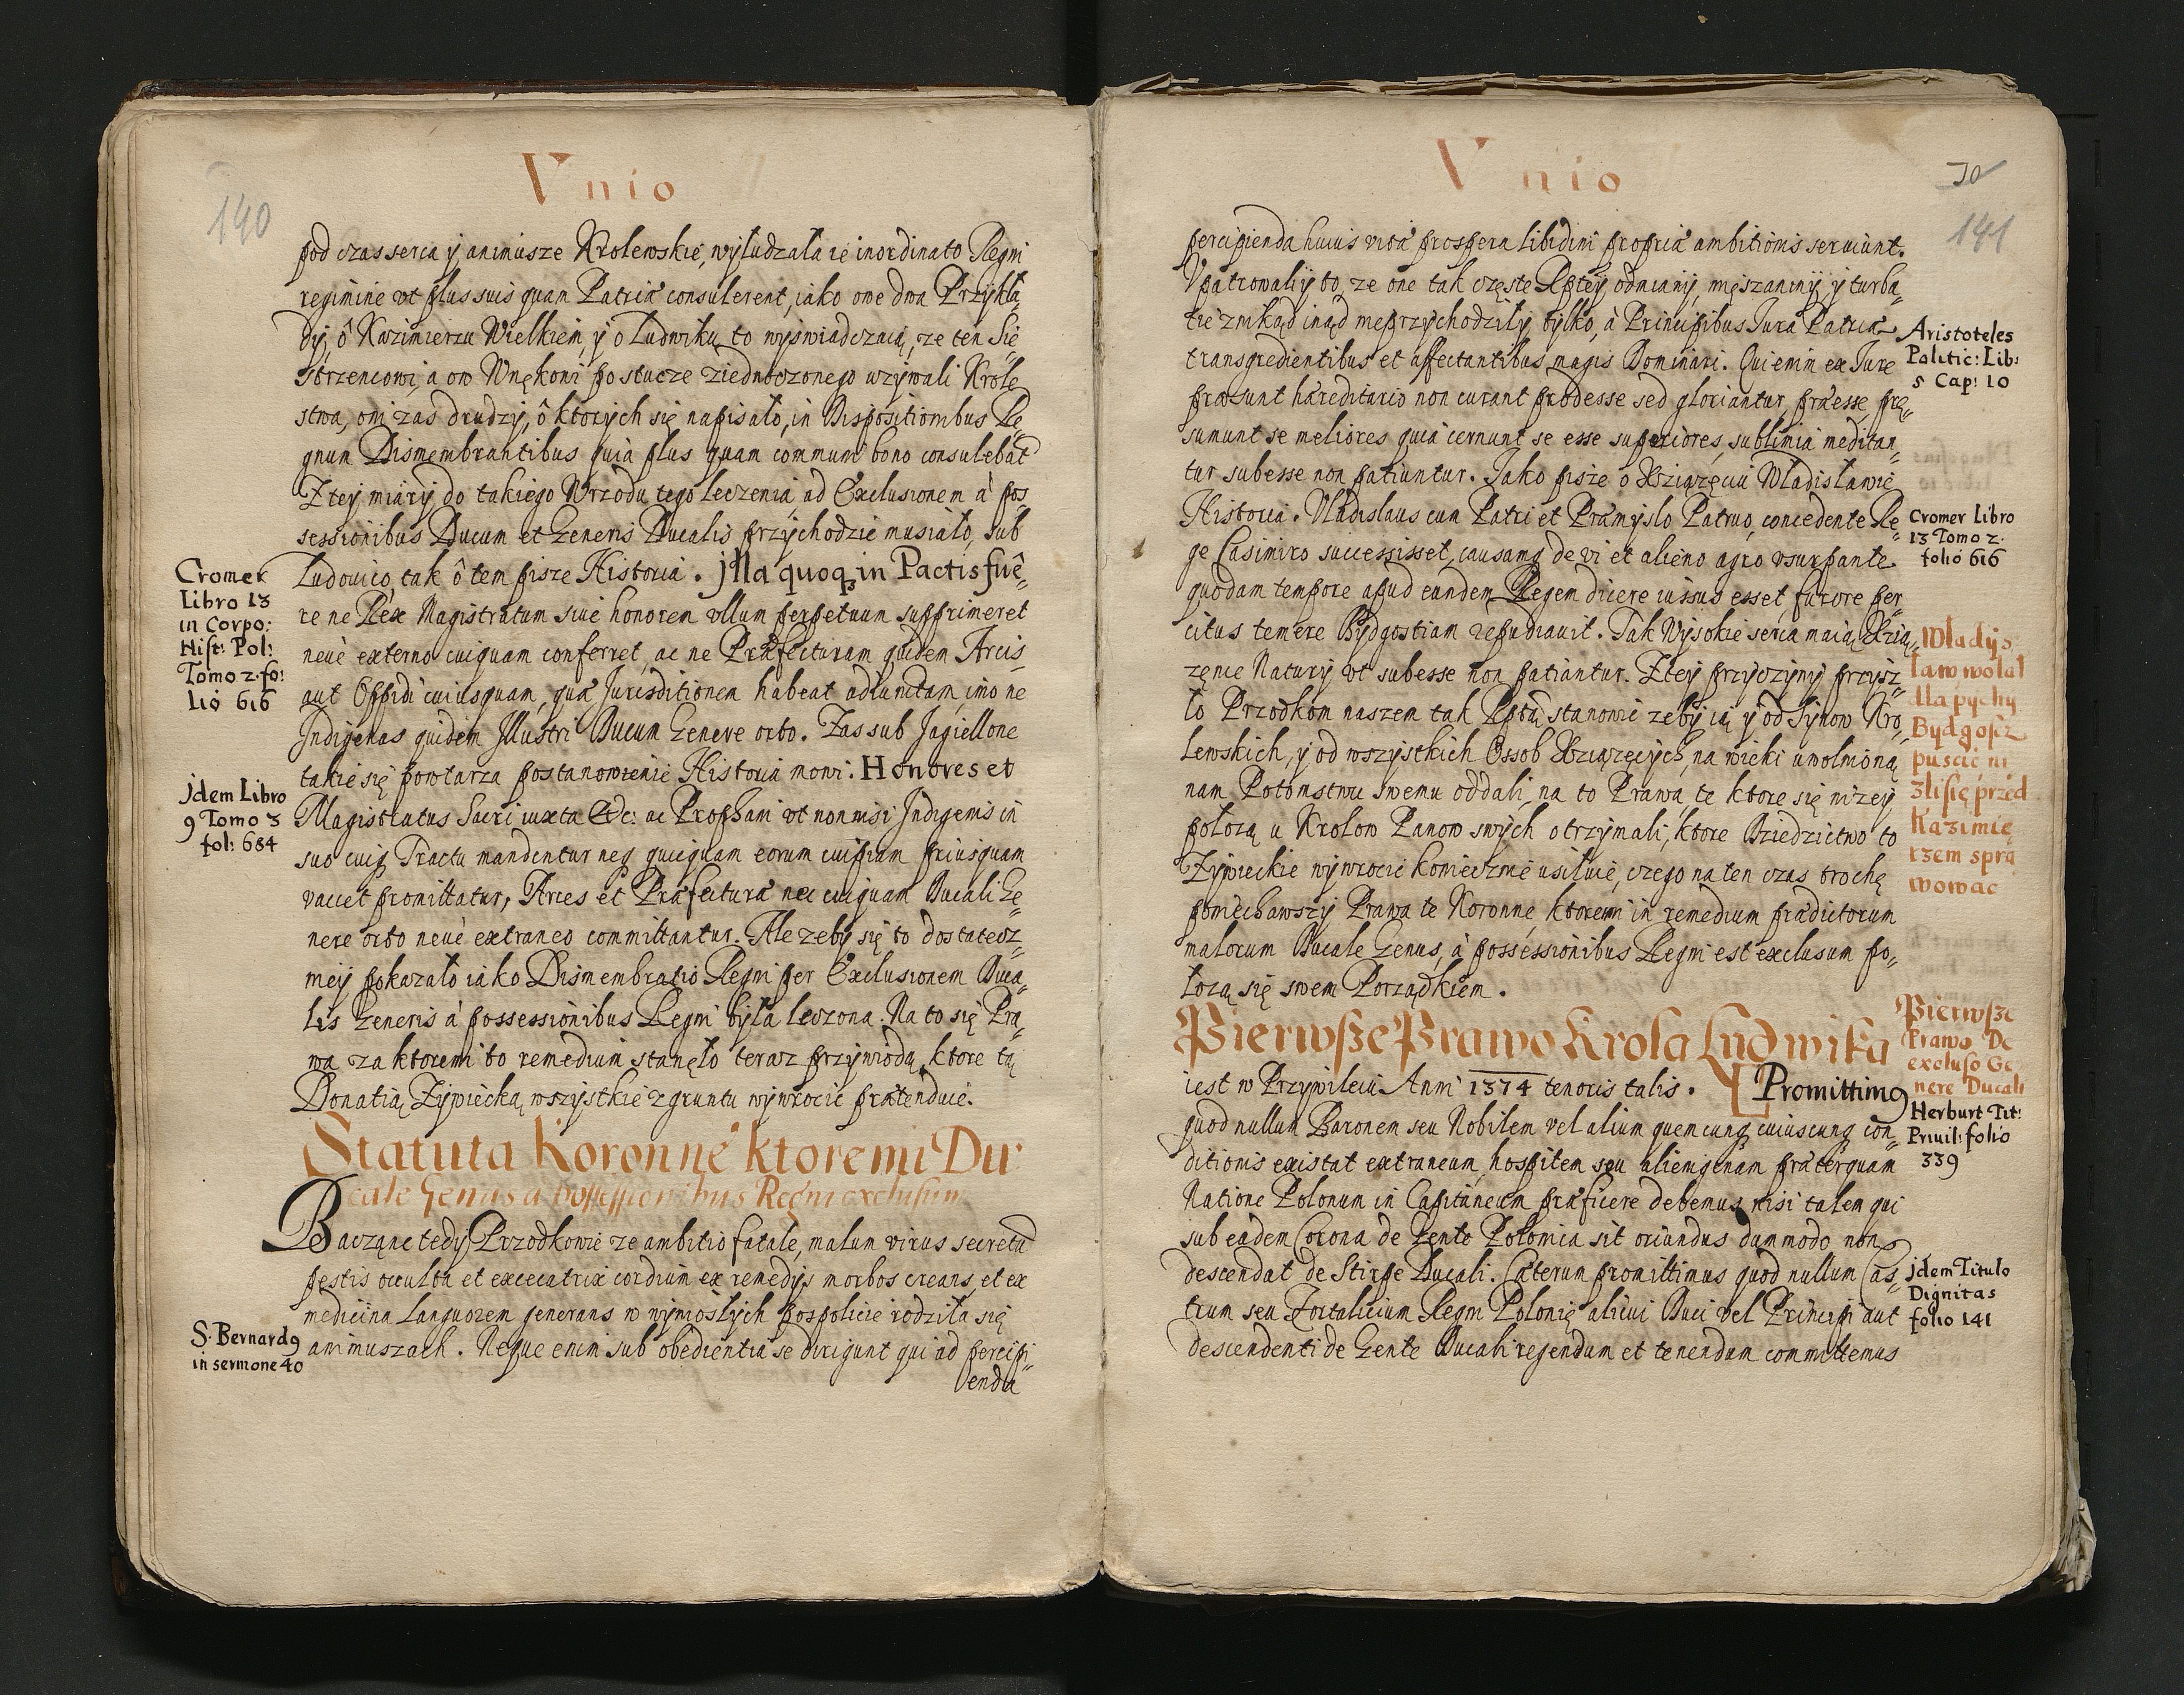 Vnio
140
pod czas serca y animusze Krolewskie, wyludzała ie inordinato Regni
regimine vt plus suis quam Patriæ consulerent, iako one dwa Przykła„
dy, ô Kazimierzu Wielkiem, y o Ludwiku to wyswiadczaią, ze ten Sie„
strzencowi, a ow Wnękowi po stucze ziednoczonego uzywali Krole„
stwa, oni zas drudzy, ô ktorych się napisało, in Dispositionibus Re„
gnum Dismembrantibus quià plus quam communi bono consulebāt
Z tey miary do takiego Wrzodu tego leczenia, ad Exclusionem à pos„
sessionibus Ducum et Generis Ducalis przychodzic musiało, sub
Ludovico, tak ô tem pisze Historia. Jlla quoq; in Pactis fuê„
re ne Rex Magistratum siue honorem vllum perpetuum supprimeret
nevè externo cuiquam conferret, ac ne Præfecturam quidem Arcis,
aut Oppidi cuiusquam, quæ Jurisditionem habeat adiunctam, imo ne
Indigenas quidem Illustri Ducum Genere orto. Zas sub Jagiellone
takie się powtarza postanowienie Historia mowi. Honores et
Magistratus Sacri iuxta &c: ac Prophani vt nonnisi Indigenis in
suo cuiq; Tractu mandentur neq; quicquam eorum cuipiam priusquam
vaccet promittatur, Arces et Præfecturæ nec cuiquam Ducali Ge„
nere orto nevè extraneo committantur. Ale zeby się to dostatecz„
niey pokazało iako Dismembratio Regni per Exclusionem Duca„
lis Generis à possessionibus Regni była leczona. Na to się Pra„
wa za ktoremi to remedium stanęło teraz przywiodą, ktore tą
Donatią Zywiecką wszystkie z gruntu wywrocic prætenduie.
Statuta Koronne ktoremi Du„
cale Genus a possessionibus Regni exclusum
Bacząnc tedy Przodkowie ze ambitio fatale, malum virus secretū
pestis occulta et excecatrix cordium ex remedys morbos creans, et ex
medicina languorem generans w wyniosłych pospolicie rodziła się
animuszach. Neque enim sub obedientia se dirigunt qui ad percipi„
enda
Cromer
Libro 13
in Corpo:
Hist: Pol:
Tomo 2. fo:
lio 616
Jdem Libro
9 Tomo 3
fol: 684
S. Bernard9
in sermone 40
Vnio
70
141
percipienda huius vitæ prospera libidini propriæ ambitionis seruiunt.
Vpatrowali y to, ze one tak częste Rptey odmiany, mięszaniny y turba„
tie znikąd inąd nieprzychodziły, tylko, à Principibus Jura Patriæ
transgredientibus et affectantibus magis Dominari. Qui enim ex Jure
præsunt hæreditario non curant prodesse sed gloriantur, præesse, præ„
sumunt se meliores quia cernunt se esse superiores, sublimia meditan„
tur subesse non patiuntur. Jako pisze o Xsiązęciu Władisławie
Historia. Vladislaus cum Patri et Præmyslo Patruo, concedente Re„
ge Casimiro successisset, causamq; de vi et alieno agro vsurpante
quodam tempore apud eundem Regem dicere iussus esset furore per„
citus temere Bydgostiam repudiauit. Tak Wysokie serca maią Xzią„
zęnce Natury vt subesse non patiantur. Z tey przyczyny przysz„
ło Przodkom naszem tak Rptą stanowic zeby ią y od Synow Kro„
lewskich, y od wszystkich Ossob Xziązęcych, na wieki uwolnioną
nam Potomstwu swemu oddali, na to Prawa te ktore się nizey
połozą u Krolow Panow swych otrzymali, ktore Dziedzictwo to
Zywieckie wywrocic koniecznie usiłuie, czego na ten czas trochę
poniechawszy Prawa te Koronne ktoremi in remedium prædictorum
malorum Ducale Genus, à possessionibus Regni est exclusum po„
łozą się swem Porządkiem.
Pierwsze Prawo Krola Ludwika
iest w Przywileiu Anni 1374 tenoris talis. Promittim9
quod nullum Baronem seu Nobilem vel alium quemcunq; cuiuscunq; con„
ditionis existat extraneum, hospitem seu alienigenam præterquam
Natione Polonum in Capitaneum præficere debemus nisi talem qui
sub eadem Corona de Gente Polonia sit oriundus dummodo non
descendat de Stirpe Ducali. Cæterum promittimus quod nullum Cas„
trum seu Fortalicium Regni Polonię alicui Duci vel Principi aut
descendenti de Gente Ducali regendum et tenendum committemus
Aristoteles
Politic: Lib:
5 Cap: 10
Cromer Libro
13 Tomo 2.
folio 616
Wladys
ław wolał
dla pychy
Bydgosz
puscic ni
zli się przed
Kazimię
rzem spra
wowac
Pierwsze
Prawo De
excluso Ge
nere Ducali
Herburt Tit:
Priuil: folio
339
Jdem Titulo
Dignitas
folio 141